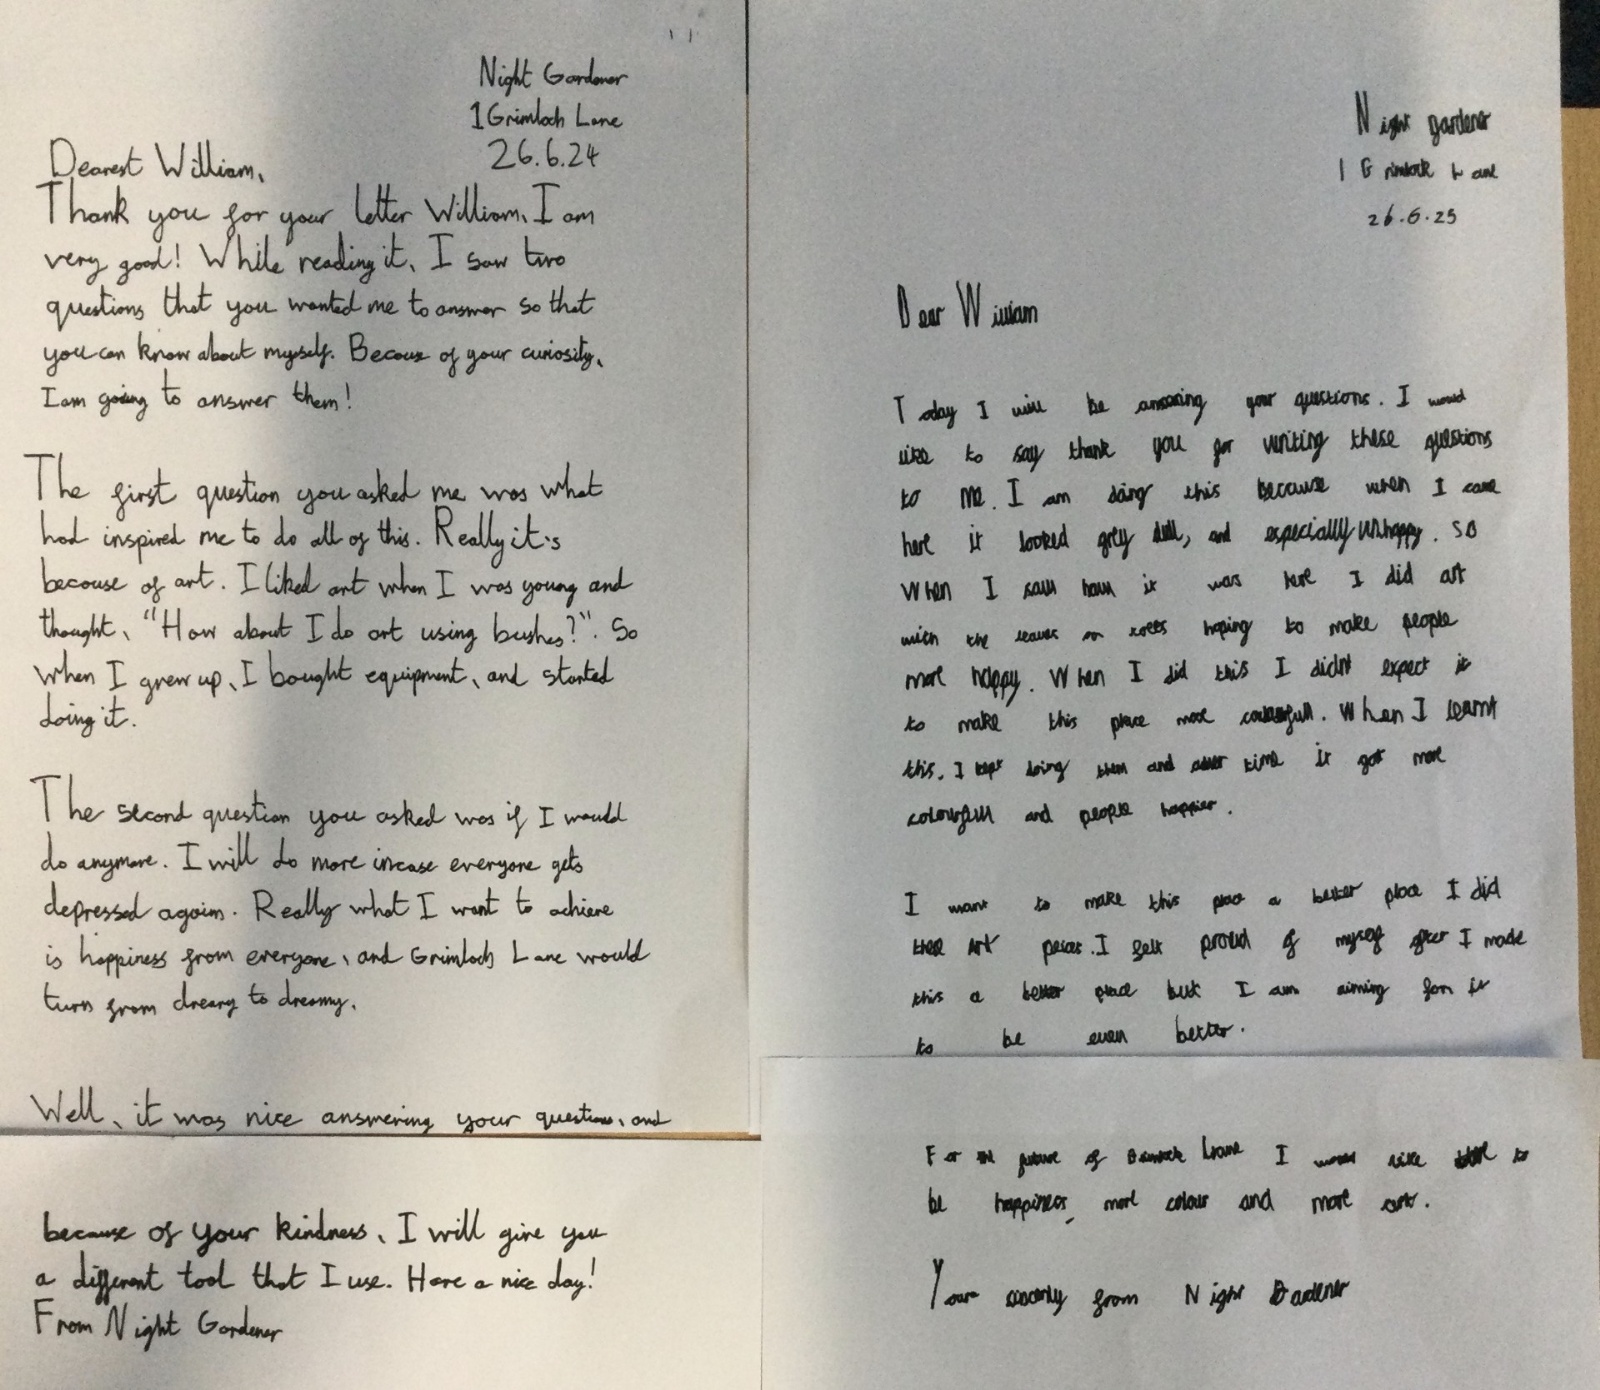 Night Gardener
1 Grimloch Lane
26.6.24
Dearest William,
Thank you for your letter William, I am
very good! While reading it, I saw two
questions that you wanted me to answer so that
you can know about myself. Because of your curiosity,
I am going to answer them!
The first question you asked me was what
had inspired me to do all of this. Really it's
because of art. I liked art when I was young and
thought, "How about I do art using bushes?". So
when I grew up, I bought equipment, and started
doing it.
The second question you asked was if I would
do anymore. I will do more incase everyone gets
depressed again. Really what I want to achieve
is happiness from everyone, and Grimloch Lane would
turn from dreary to dreamy.
Well, it was nice answering your questions, and
because of your kindness, I will give you
a different tool that I use. Have a nice day!
From Night Gardener
Night gardener
1 Grimlock Lane
26.6.25
Dear William
Today I will be answering your questions. I would
like to say thank you for writing these questions
to me. I am doing this because when I came
here it looked grey dull, and especially unhappy. So
When I saw how it was here I did art
with the leaves on trees hoping to make people
more happy. When I did this I didnt expect it
to make this place more colourfull. When I learnt
this. I kept doing them and after time it got more
colourfull and people happier.
I want to make this place a better place I did
these Art peices. I felt proud of myself after I made
this a better place but I am aiming for it
to be even better.
For the future of Grimlock Lane I would like to
be happiness, more colour and more art.
Your sincerly from Night Gardener